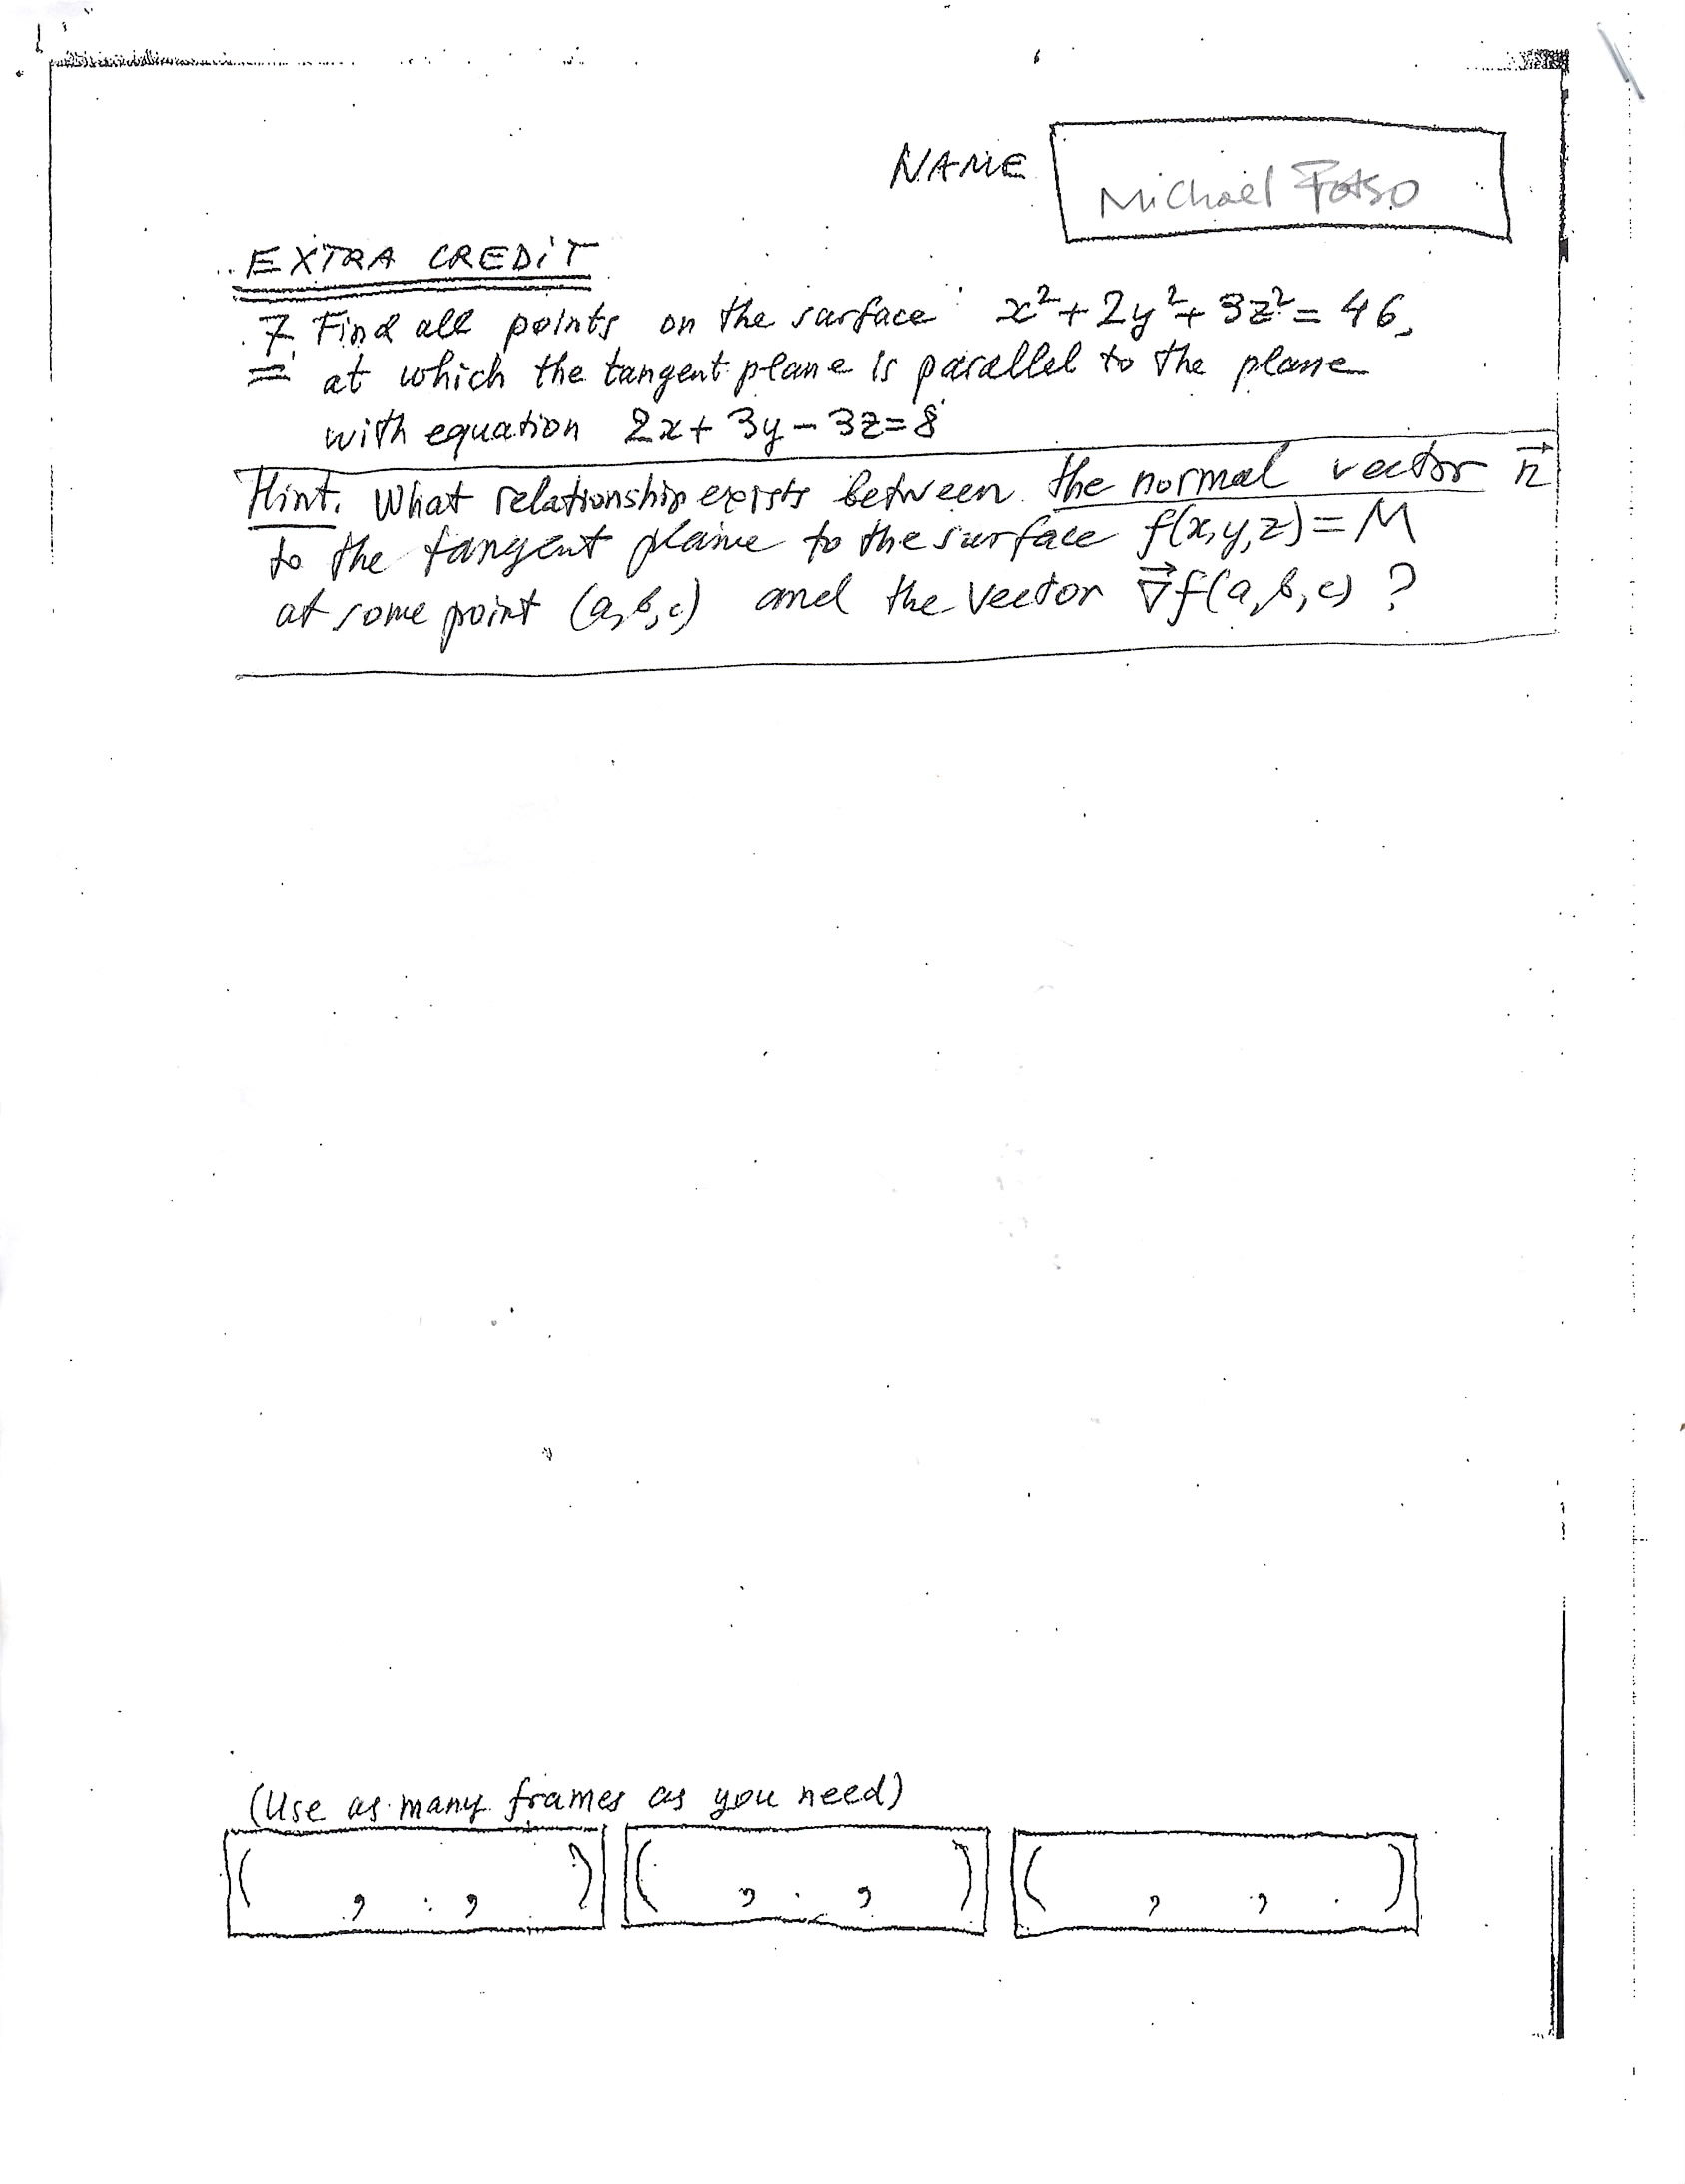 NAME Michael Fotso
EXTRA CREDIT
7. Find all points on the surface x²+2y²+3z²=46,
at which the tangent plane is parallel to the plane
with equation 2x+3y-3z=8
Hint. What relationship exists between the normal vector n⃗
to the tangent plane to the surface f(x,y,z)=M
at some point (a,b,c) and the vector ∇⃗f(a,b,c) ?
(Use as many frames as you need)
( , , ) ( , , ) ( , , )